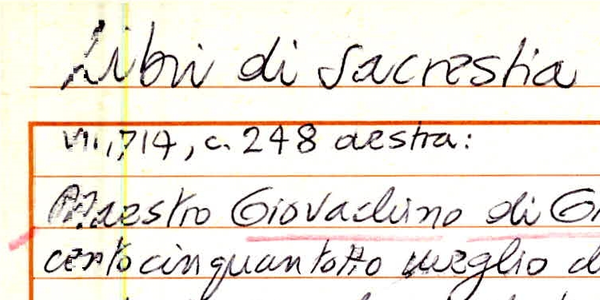 Libri di Sacrestia
n. 714, c. 248 destra:
Maestro Giovachino di G
centocinquantotto meglio d